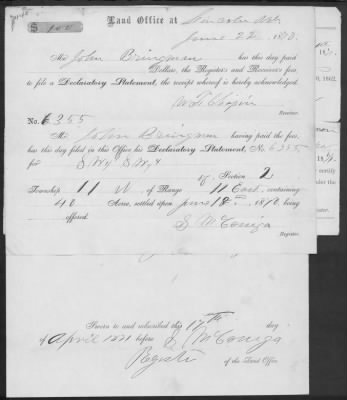 $ 100
Land Office at Lincoln Neb
June 22 1870.
Mr John Bringman has this day paid
Dollars, the Register's and Receiver's fees,
to file a Declaratory Statement, the receipt whereof is hereby acknowledged.
Receiver.
No. 6355
Mr. John Bringman having paid the fees,
has this day filed in this Office his Declaratory Statement, No. 6355
for S W¼ S W¼ of Section 2
Township 11 N of Range 11 East, containing
40 Acres, settled upon June 18th, 1870, being
offered.
S McConiga
Register.
1862
certify
under the
Sworn to and subscribed this 17th day
of April 1871 before S McConiga
Register of the Land Office.